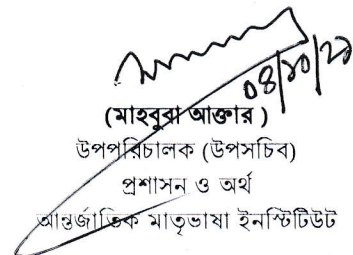 ০৪/১০/২১
(মাহবুবা আক্তার )
উপপরিচালক (উপসচিব)
প্রশাসন ও অর্থ
আন্তর্জাতিক মাতৃভাষা ইনস্টিটিউট